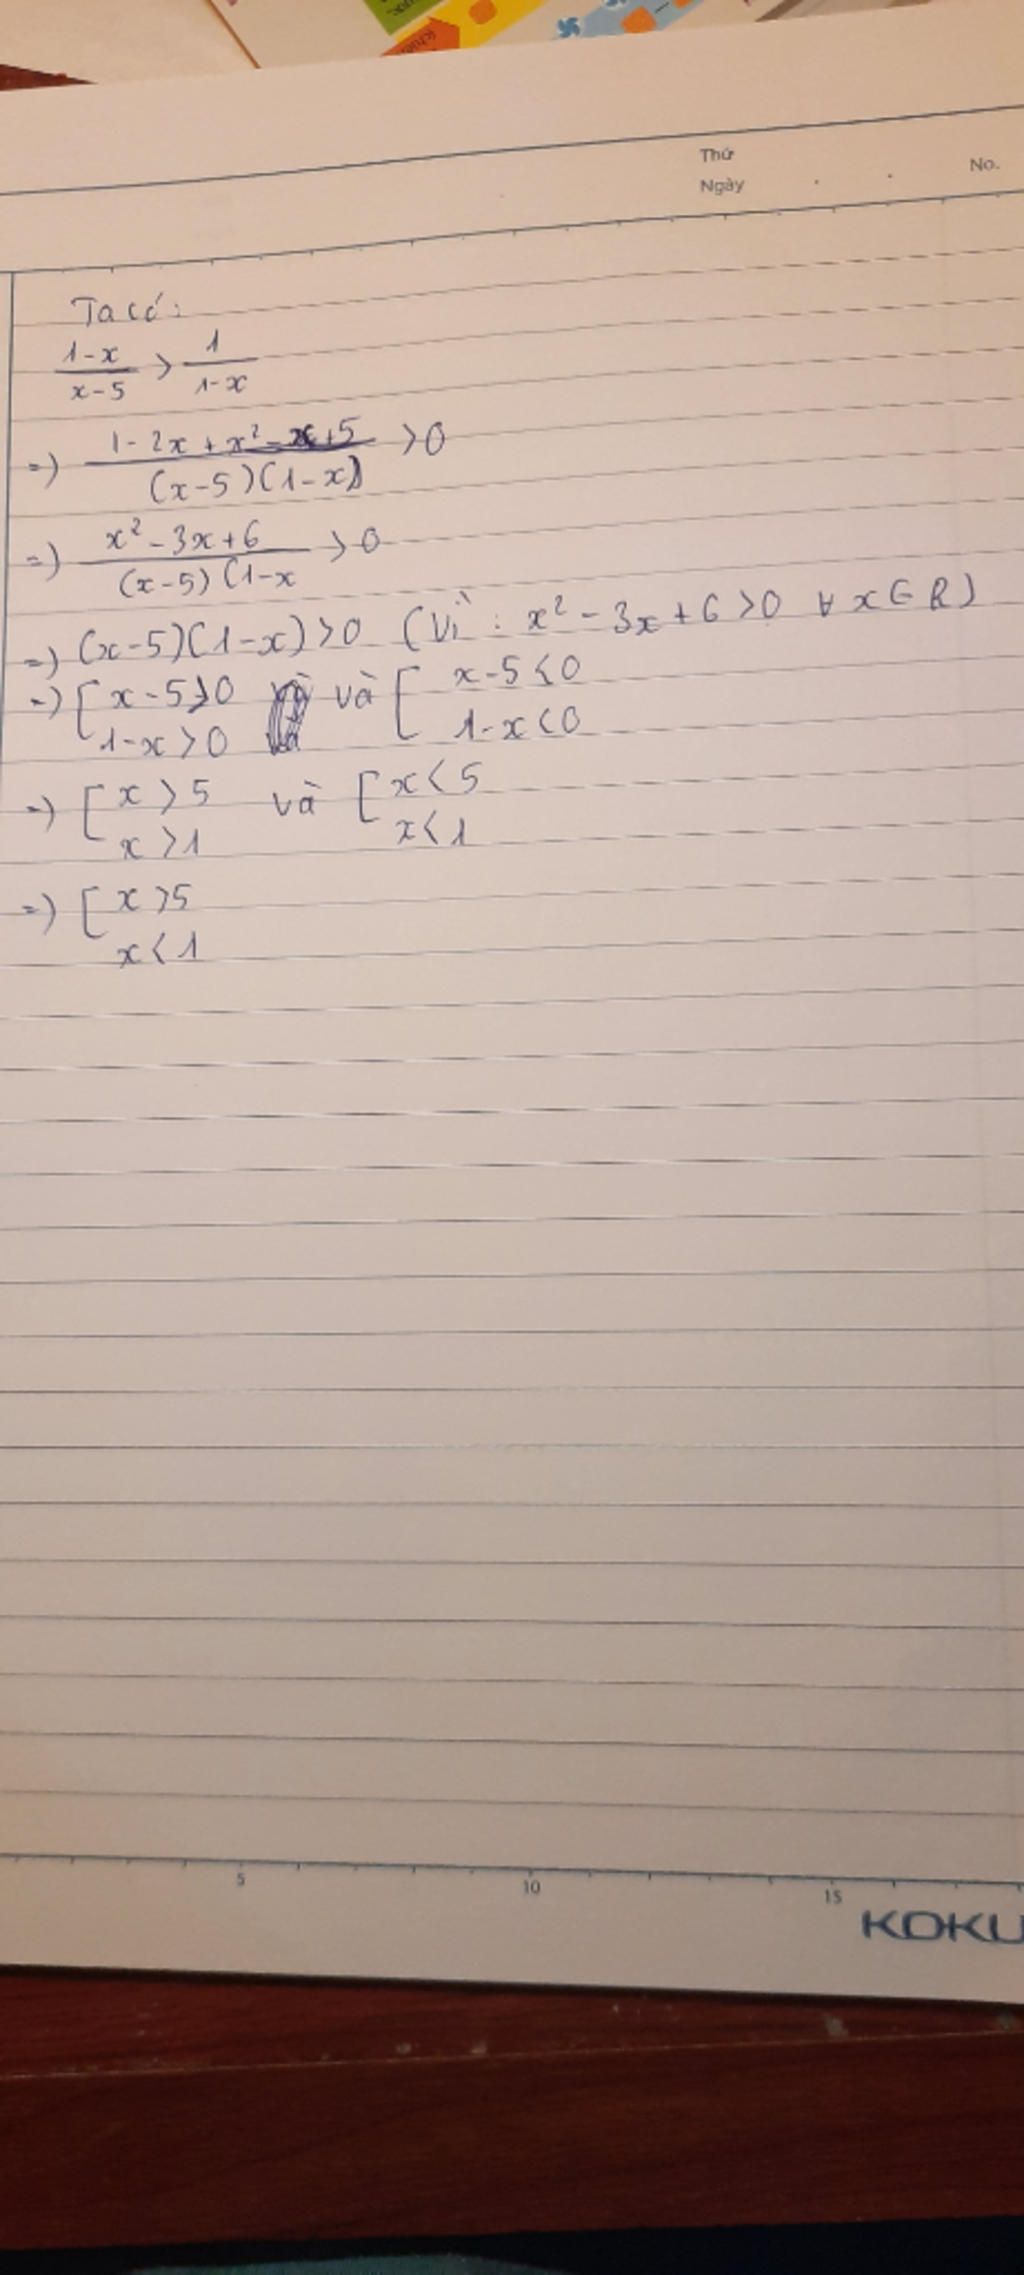 Thứ
Ngày
No.
Ta có:
(1-x)/(x-5) > 1/(1-x)
=) (1-2x+x²-x+5)/((x-5)(1-x)) >0
=) (x²-3x+6)/((x-5)(1-x) >0
=) (x-5)(1-x) >0 (Vì: x²-3x+6>0 ∀ x∈R)
=) [ x-5>0 và [ x-5<0
1-x>0 1-x<0
=) [ x>5 và [ x<5
x>1 x<1
=) [ x>5
x<1
5 10 15
KOKU